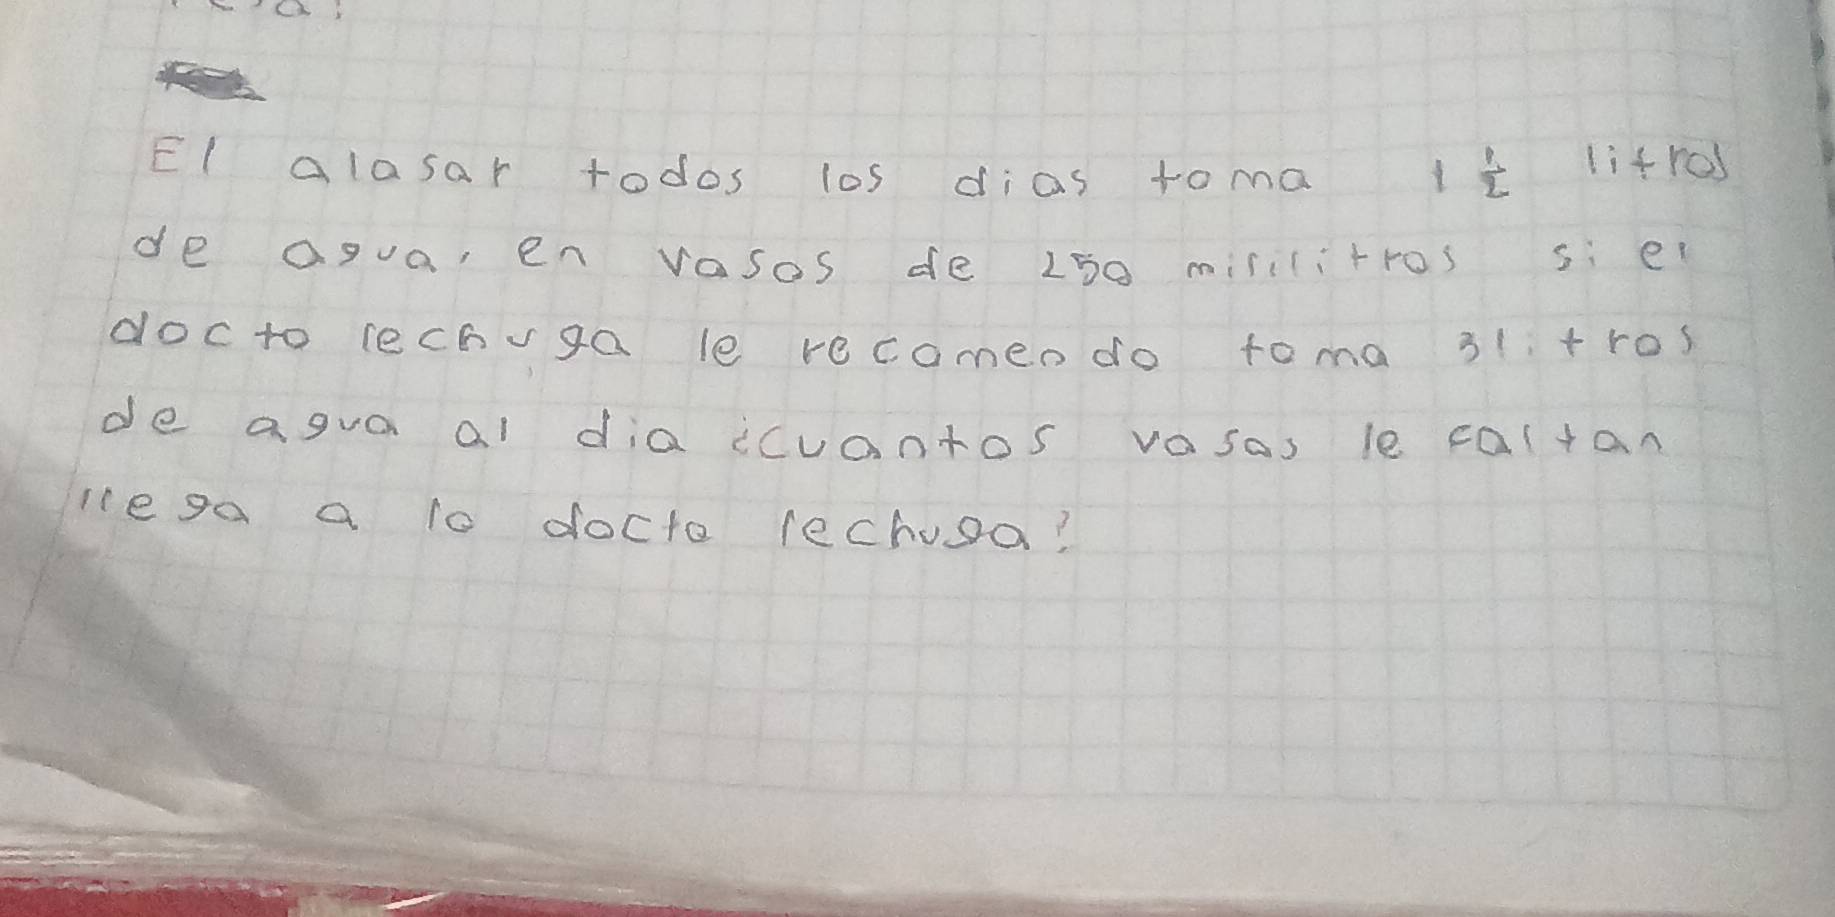 El alasar todos los dias toma 1 1/2 litros
de agua, en vasos de 250 mililitros si el
docto lechuga le recomendo toma 3 litros
de agua al dia ¿cuantos vasas le faltan
llega a lo docto lechuga?